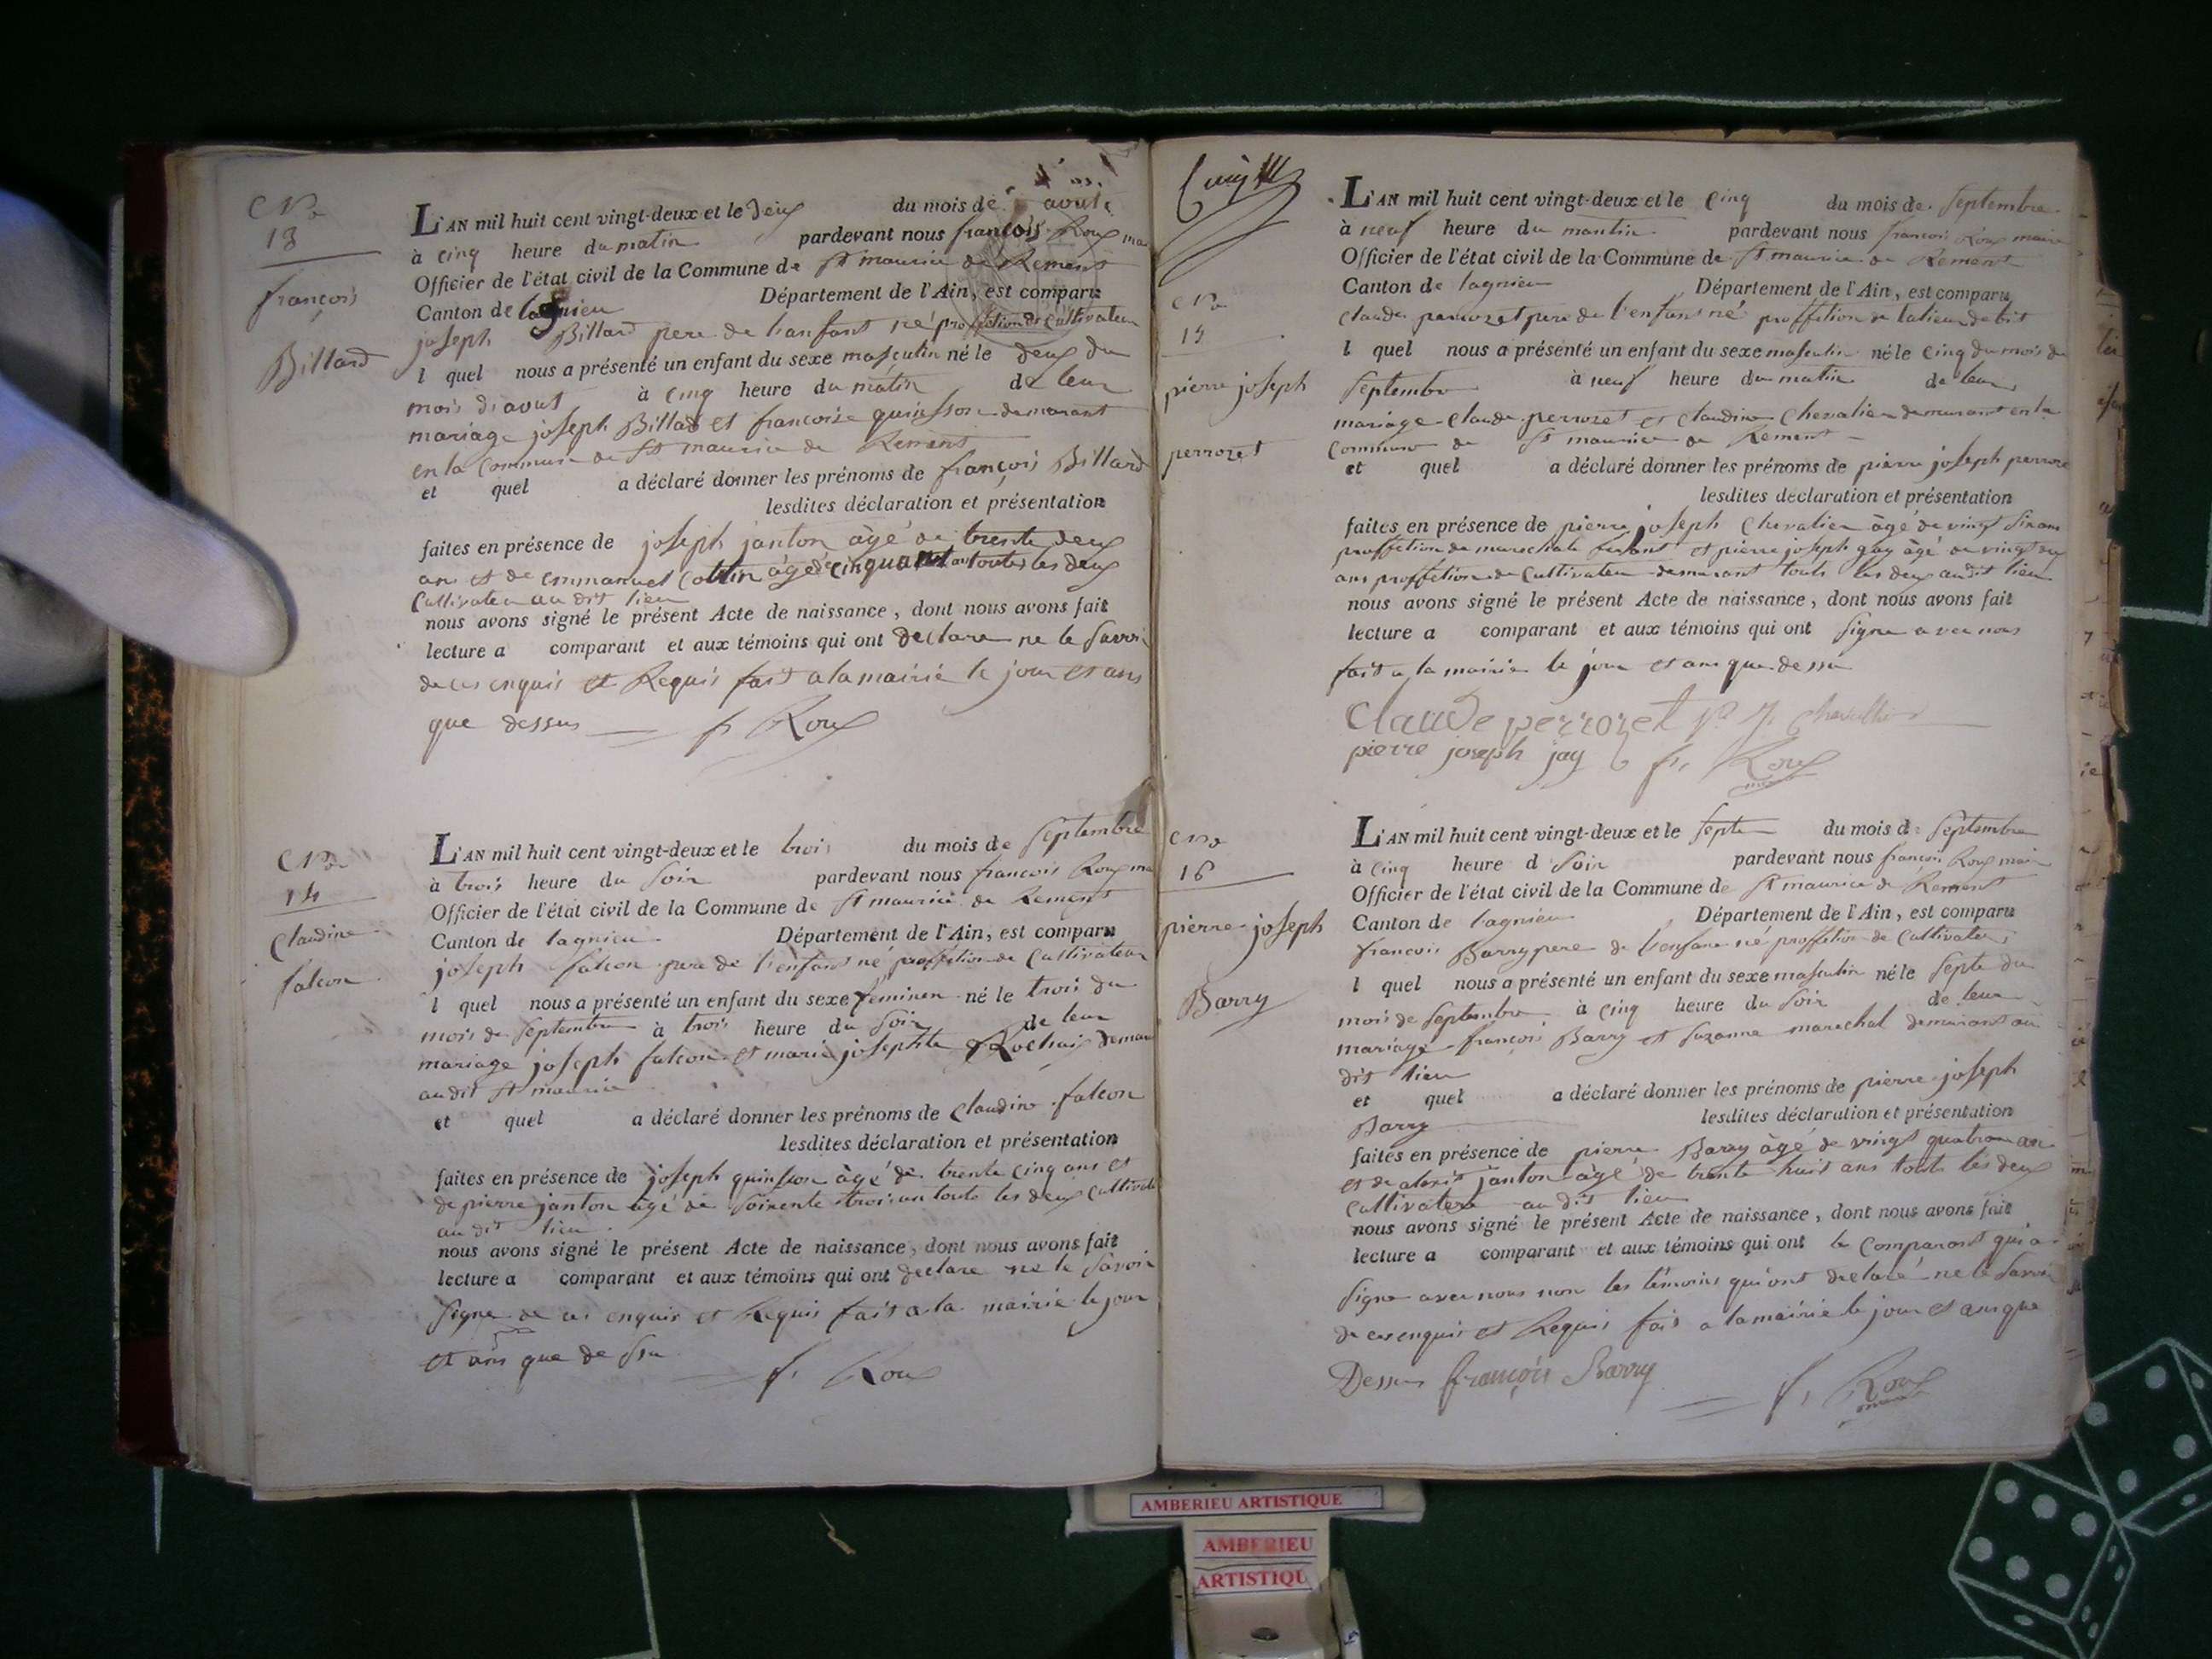 No
13
françois
Billard
L'AN mil huit cent vingt-deux et le deux du mois de aout
à cinq heure du matin pardevant nous françois Roux
Officier de l'état civil de la Commune de St maurice de Rement
Canton de lagnieu Département de l'Ain, est comparu
joseph Billard pere de l'anfant né proffetion de Cultivateur
l quel nous a présenté un enfant du sexe masculin né le deux du
mois d'aout à cinq heure du matin de leur
mariage joseph Billard et francoise quinsson demurant
en la Commune de St maurice de Rement
et quel a déclaré donner les prénoms de françois Billard
lesdites déclaration et présentation
faites en présence de joseph janton âgé de trente deux
ans et de emmanuel Cottin âgé de cinquante toutes les deux
Cultivateur au dit lieu
nous avons signé le présent Acte de naissance, dont nous avons fait
lecture a comparant et aux témoins qui ont declare ne le savoir
de ces enquis et Requis fait a la mairie le jour et ans
que dessus f Roux
No
14
Claudine
falcon
L'AN mil huit cent vingt-deux et le trois du mois de Septembre
à trois heure du Soir pardevant nous francois Roux
Officier de l'état civil de la Commune de St maurice de Rement
Canton de lagnieu Département de l'Ain, est comparu
joseph falcon pere de l'enfant né proffetion de Cultivateur
l quel nous a présenté un enfant du sexe féminen né le trois du
mois de Septembre à trois heure du Soir de leur
mariage joseph falcon et marie josephte Rochais
au dit St maurice
et quel a déclaré donner les prénoms de Claudine falcon
lesdites déclaration et présentation
faites en présence de joseph quinsson âgé de trente cinq ans et
de pierre janton âgé de Soixente trois an touts les deux
au dit lieu
nous avons signé le présent Acte de naissance, dont nous avons fait
lecture a comparant et aux témoins qui ont declare ne le Savoir
Signe de ces enquis et Requis fait a la mairie le jour
et ans que de ssu f. Roux
No
15
pierre joseph
perrozet
L'AN mil huit cent vingt-deux et le Cinq du mois de Septembre
à neuf heure du mantin pardevant nous francois Roux maire
Officier de l'état civil de la Commune de St maurice de Rement
Canton de lagnieu Département de l'Ain, est comparu
Claude perrozet pere de l'enfant né proffetion de
l quel nous a présenté un enfant du sexe masculin né le Cinq du mois de
Septembre à neuf heure du matin de leur
mariage Claude perrozet et Claudine Chevalier demurant en la
Commune de St maurice de Rement
et quel a déclaré donner les prénoms de pierre joseph
lesdites déclaration et présentation
faites en présence de pierre joseph Chevalier âgé de vingt
proffetion de marechale et pierre joseph gay âgé de vingt
ans proffetion de Cultivateur demurant touts les deux au dit lieu
nous avons signé le présent Acte de naissance, dont nous avons fait
lecture a comparant et aux témoins qui ont Signe avec nous
fait a la mairie le jour et ans que dessu
Claude perrozet
pierre joseph jay f. Roux
No
16
pierre joseph
Barry
L'AN mil huit cent vingt-deux et le Septe du mois de Septembre
à Cinq heure d Soir pardevant nous francois Roux
Officier de l'état civil de la Commune de St maurice de Rement
Canton de lagnieu Département de l'Ain, est comparu
francois Barry pere de l'enfant né proffetion de Cultivateur
l quel nous a présenté un enfant du sexe masculin né le Septe du
mois de Septembre à Cinq heure du Soir de leur
mariage francois Barry et Suzanne marechal demurant au
dit lieu
et quel a déclaré donner les prénoms de pierre joseph
Barry lesdites déclaration et présentation
faites en présence de pierre Barry âgé de vingt quatre an
et de alexis janton âgé de trente huit ans touts les deux
Cultivateur au dit lieu
nous avons signé le présent Acte de naissance, dont nous avons fait
lecture a comparant et aux témoins qui ont le Comparant qui a
Signe avec nous non les témoins qui ont declaré ne le Savoir
de ces enquis et Requis fait a la mairie le jour et ans que
Dessus françois Barry f. Roux
AMBERIEU ARTISTIQUE
AMBERIEU
ARTISTIQU